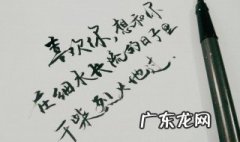 喜欢你，想和你
在细水长流的日子里
干柴烈火地过
广东龙网